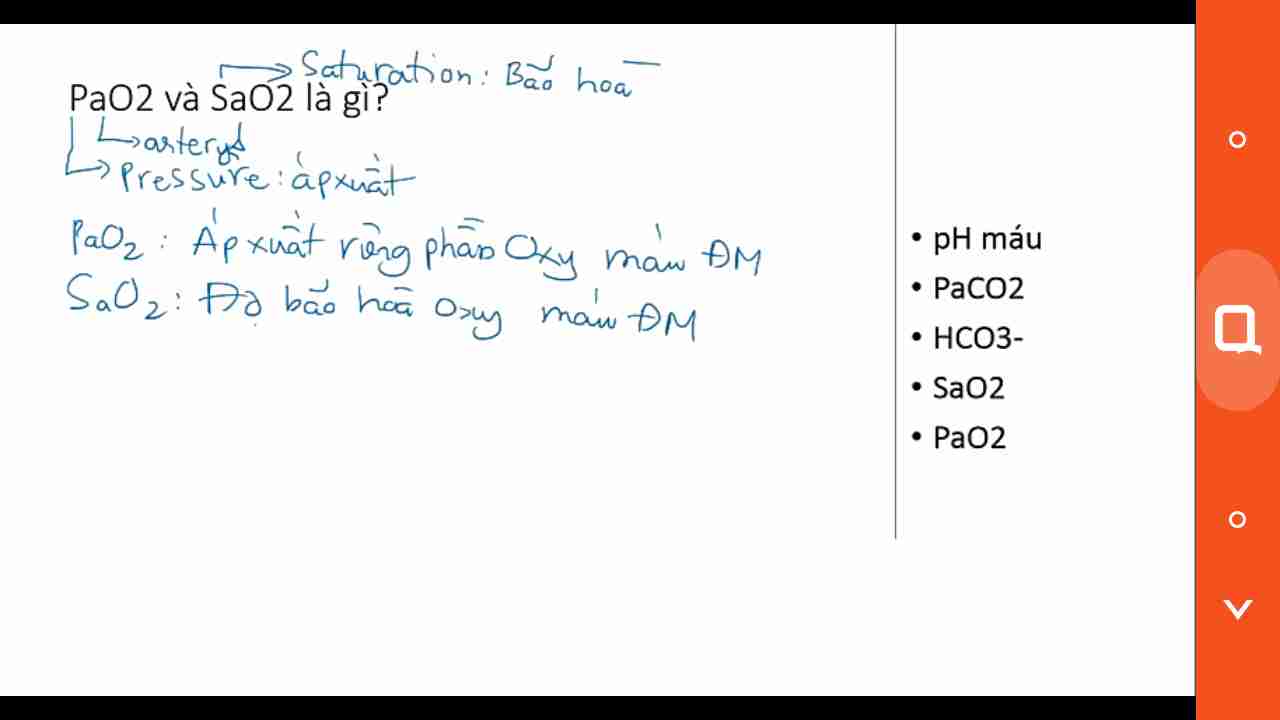 Saturation: Bão hoà
PaO2 và SaO2 là gì?
artery
Pressure: áp xuất
PaO2: Áp xuất riêng phần Oxy máu ĐM
SaO2: Độ bão hoà Oxy máu ĐM
• pH máu
• PaCO2
• HCO3-
• SaO2
• PaO2